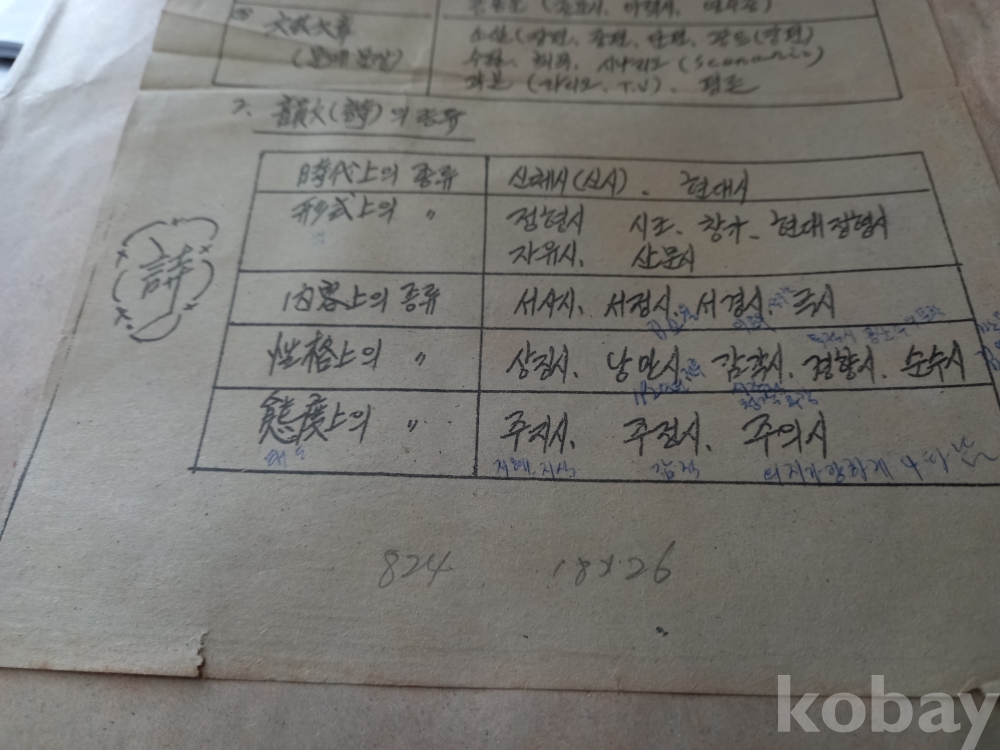 文藝文章
(문예문장)
소설(장편, 중편, 단편, 콩트(장편)
수필, 희곡, 시나리오(Scenario)
각본(라디오, T.V), 평론
2. 韻文(詩)의 종류
時代上의 종류 신체시(신시), 현대시
形式上의 〃 정형시 시조, 창가, 현대정형시
자유시, 산문시
詩
內容上의 종류 서사시, 서정시, 서경시, 극시
性格上의 〃 상징시, 낭만시, 감각시, 경향시, 순수시
態度上의 〃 주지시, 주정시, 주의시
태도 지혜, 지식 감정 의지가 강하게 나타남
824 18x26
kobay